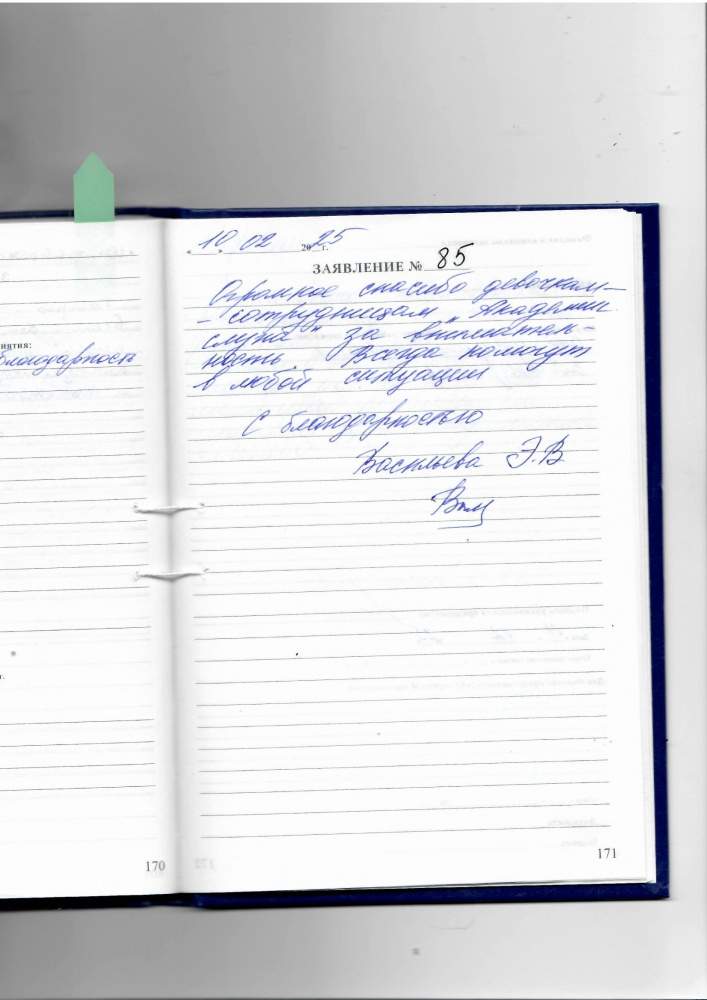 иятия:
благодарность
г.
170
« 10 » 02 2025 г.
ЗАЯВЛЕНИЕ № 85
Огромное спасибо девочкам-
- сотрудницам „Академии
слуха" за вниматель-
ность. Всегда помогут
в любой ситуации
С благодарностью
Васильева Э.В
171